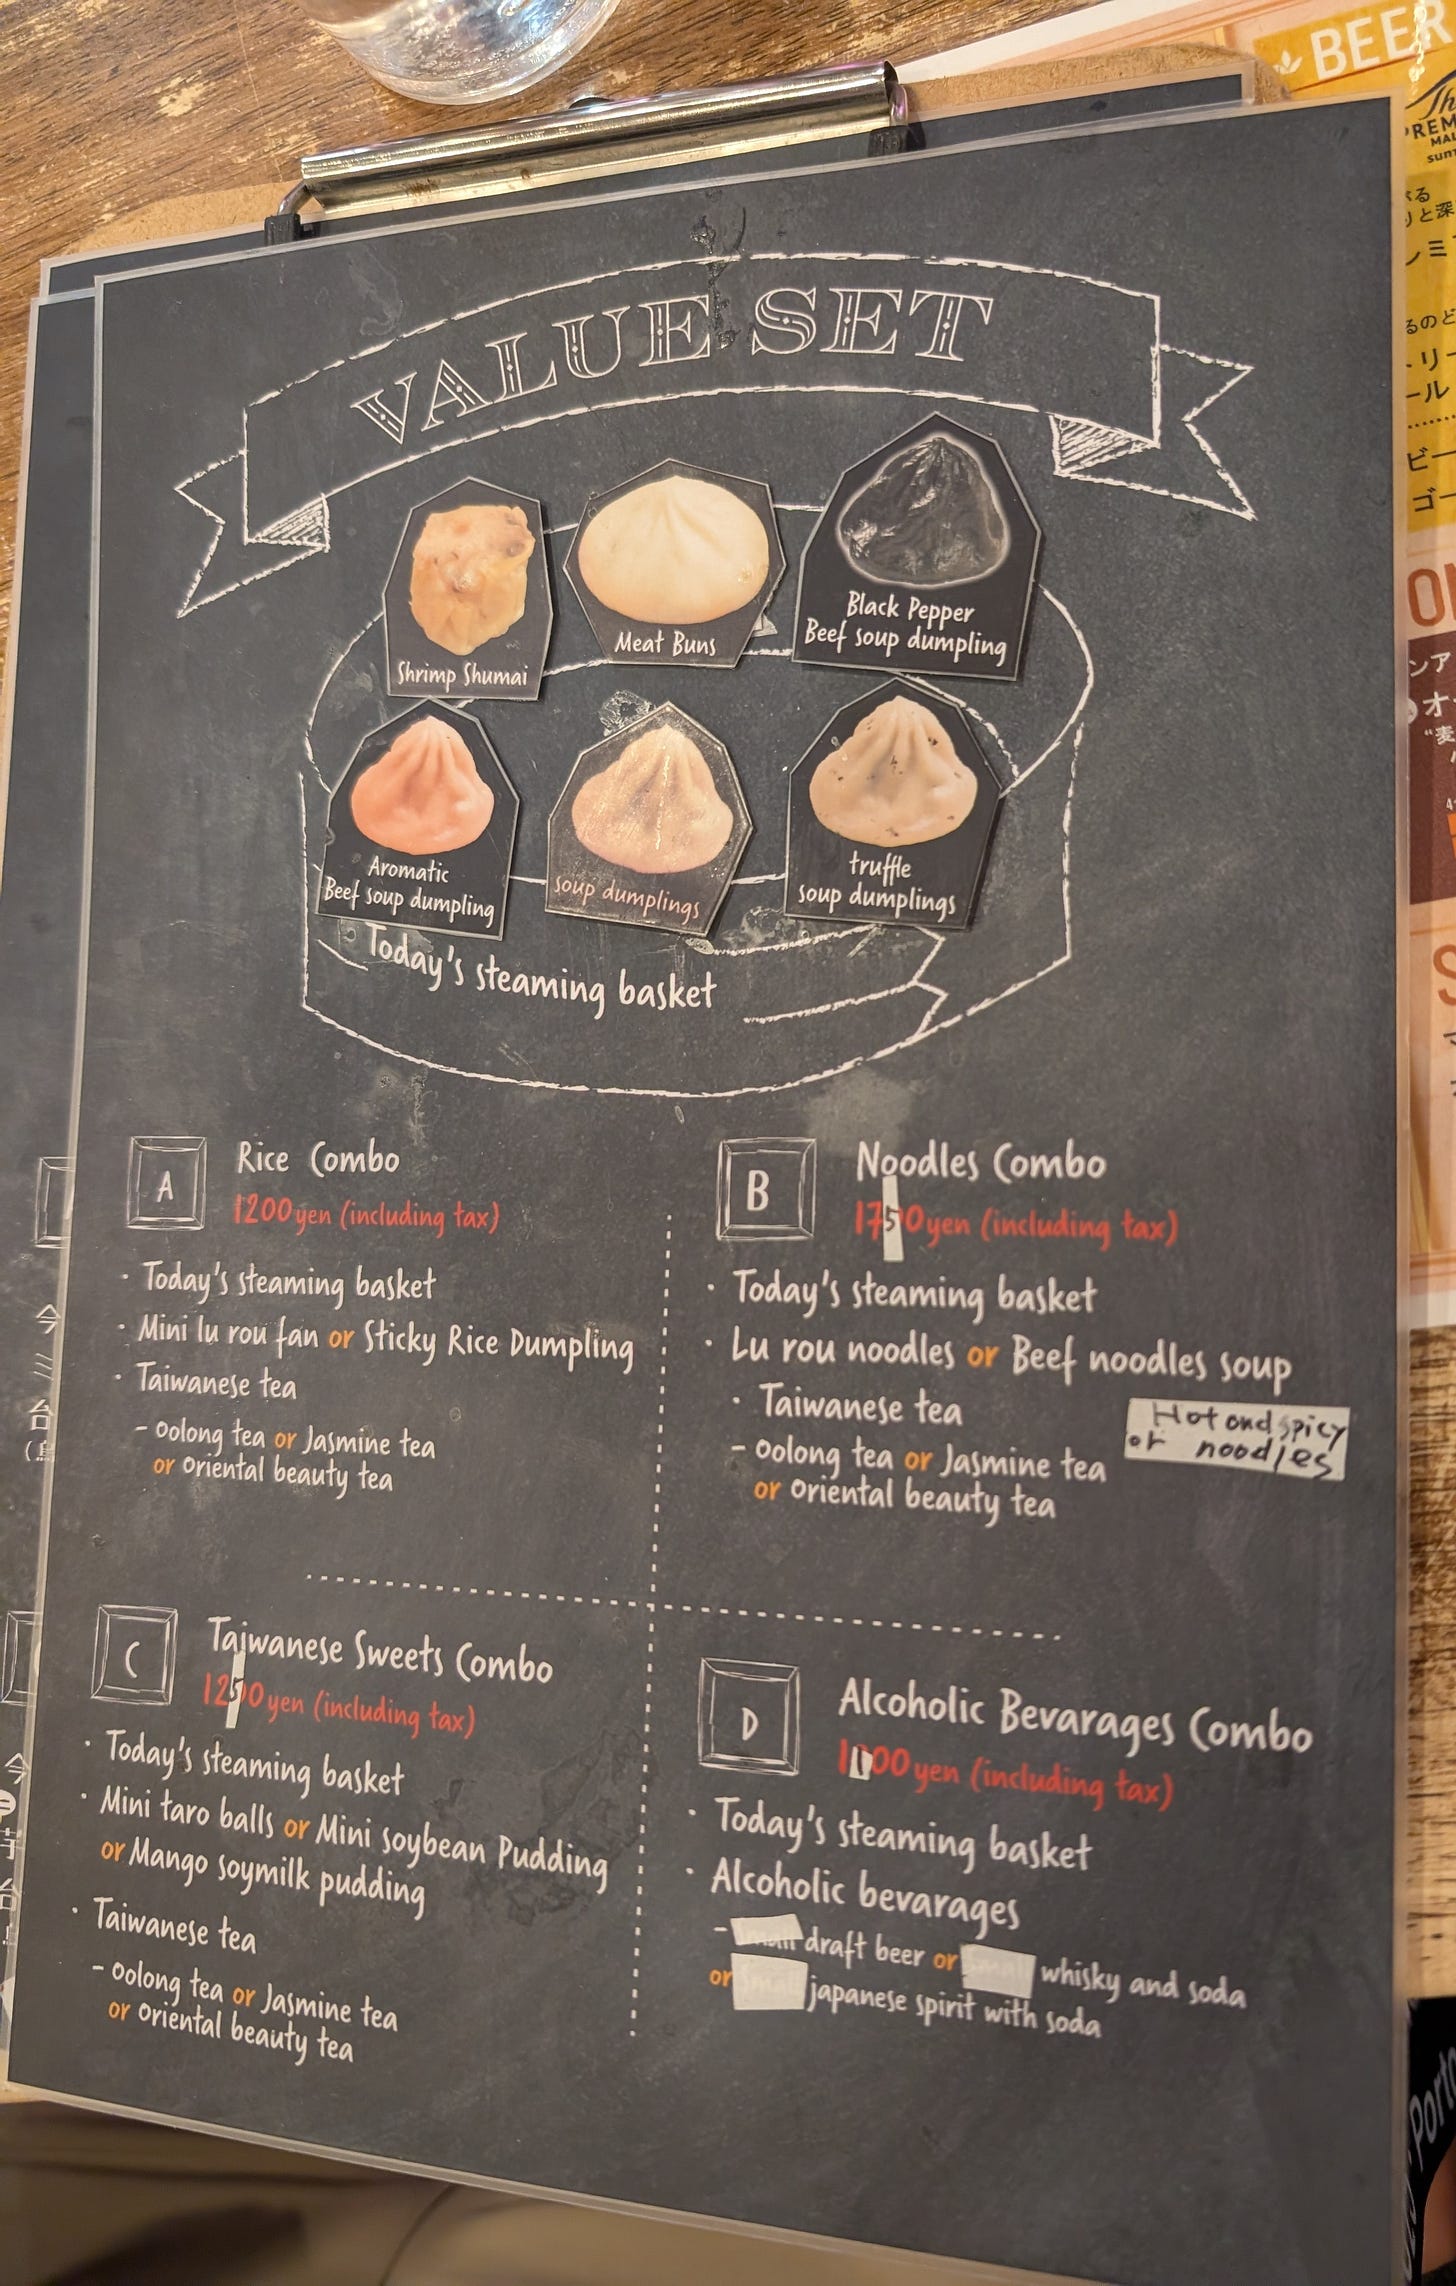 BEER
VALUE SET
Shrimp Shumai
Meat Buns
Black Pepper
Beef soup dumpling
Aromatic
Beef soup dumpling
soup dumplings
truffle
soup dumplings
Today's steaming basket
A
Rice Combo
1200yen (including tax)
· Today's steaming basket
· Mini lu rou fan or Sticky Rice Dumpling
· Taiwanese tea
- oolong tea or Jasmine tea
or oriental beauty tea
B
Noodles Combo
1750yen (including tax)
· Today's steaming basket
· Lu rou noodles or Beef noodles soup
· Taiwanese tea
Hot and spicy
or noodles
- oolong tea or Jasmine tea
or oriental beauty tea
C
Taiwanese Sweets Combo
1250yen (including tax)
· Today's steaming basket
· Mini taro balls or Mini soybean Pudding
or Mango soymilk pudding
· Taiwanese tea
- oolong tea or Jasmine tea
or oriental beauty tea
D
Alcoholic Bevarages Combo
yen (including tax)
· Today's steaming basket
· Alcoholic bevarages
- draft beer or whisky and soda
or japanese spirit with soda